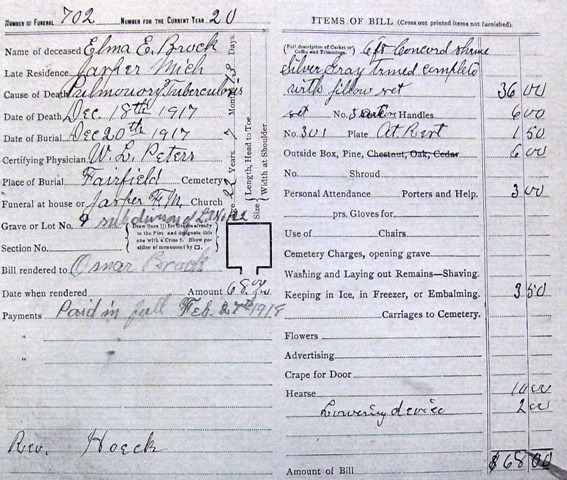 NUMBER OF FUNERAL 702 NUMBER FOR THE CURRENT YEAR 20
Name of deceased Elma E. Brock
Late Residence Jasper Mich
Cause of Death Pulmonory Tuberculous
Date of Death Dec 18th 1917
Date of Burial Dec 20th 1917
Certifying Physician W. L. Peters
Place of Burial Fairfield Cemetery
Funeral at house or Jasper F.M. Church
Grave or Lot No. 9 subdivision of L.
Draw lines [|] for Graves already
in the Plot and designate this
one with a Cross †. Show po-
sition of monument by □.
Section No.
Bill rendered to Omar Brock
Date when rendered Amount 68.00
Payments Paid in full Feb. 27th 1918
"
"
Rev. Hoeck
Age 22 Years 7 Months 28 Days.
Size Length, Head to Toe.
Width at Shoulder
ITEMS OF BILL (Cross out printed items not furnished).
(Full description of Casket or Coffin and Trimmings. 6ft Concord shrine
Silver Gray trmed complete
with pillow set 36 00
set No. 3 Handles 6 00
No. 301 Plate At Rest 1 50
Outside Box, Pine, Chestnut, Oak, Cedar 6 00
No. Shroud
Personal Attendance Porters and Help. 3 00
prs. Gloves for
Use of Chairs
Cemetery Charges, opening grave
Washing and Laying out Remains—Shaving.
Keeping in Ice, in Freezer, or Embalming. 3 50
Carriages to Cemetery.
Flowers
Advertising
Crape for Door
Hearse 10 00
Lowering device 2 00
Amount of Bill $68 00